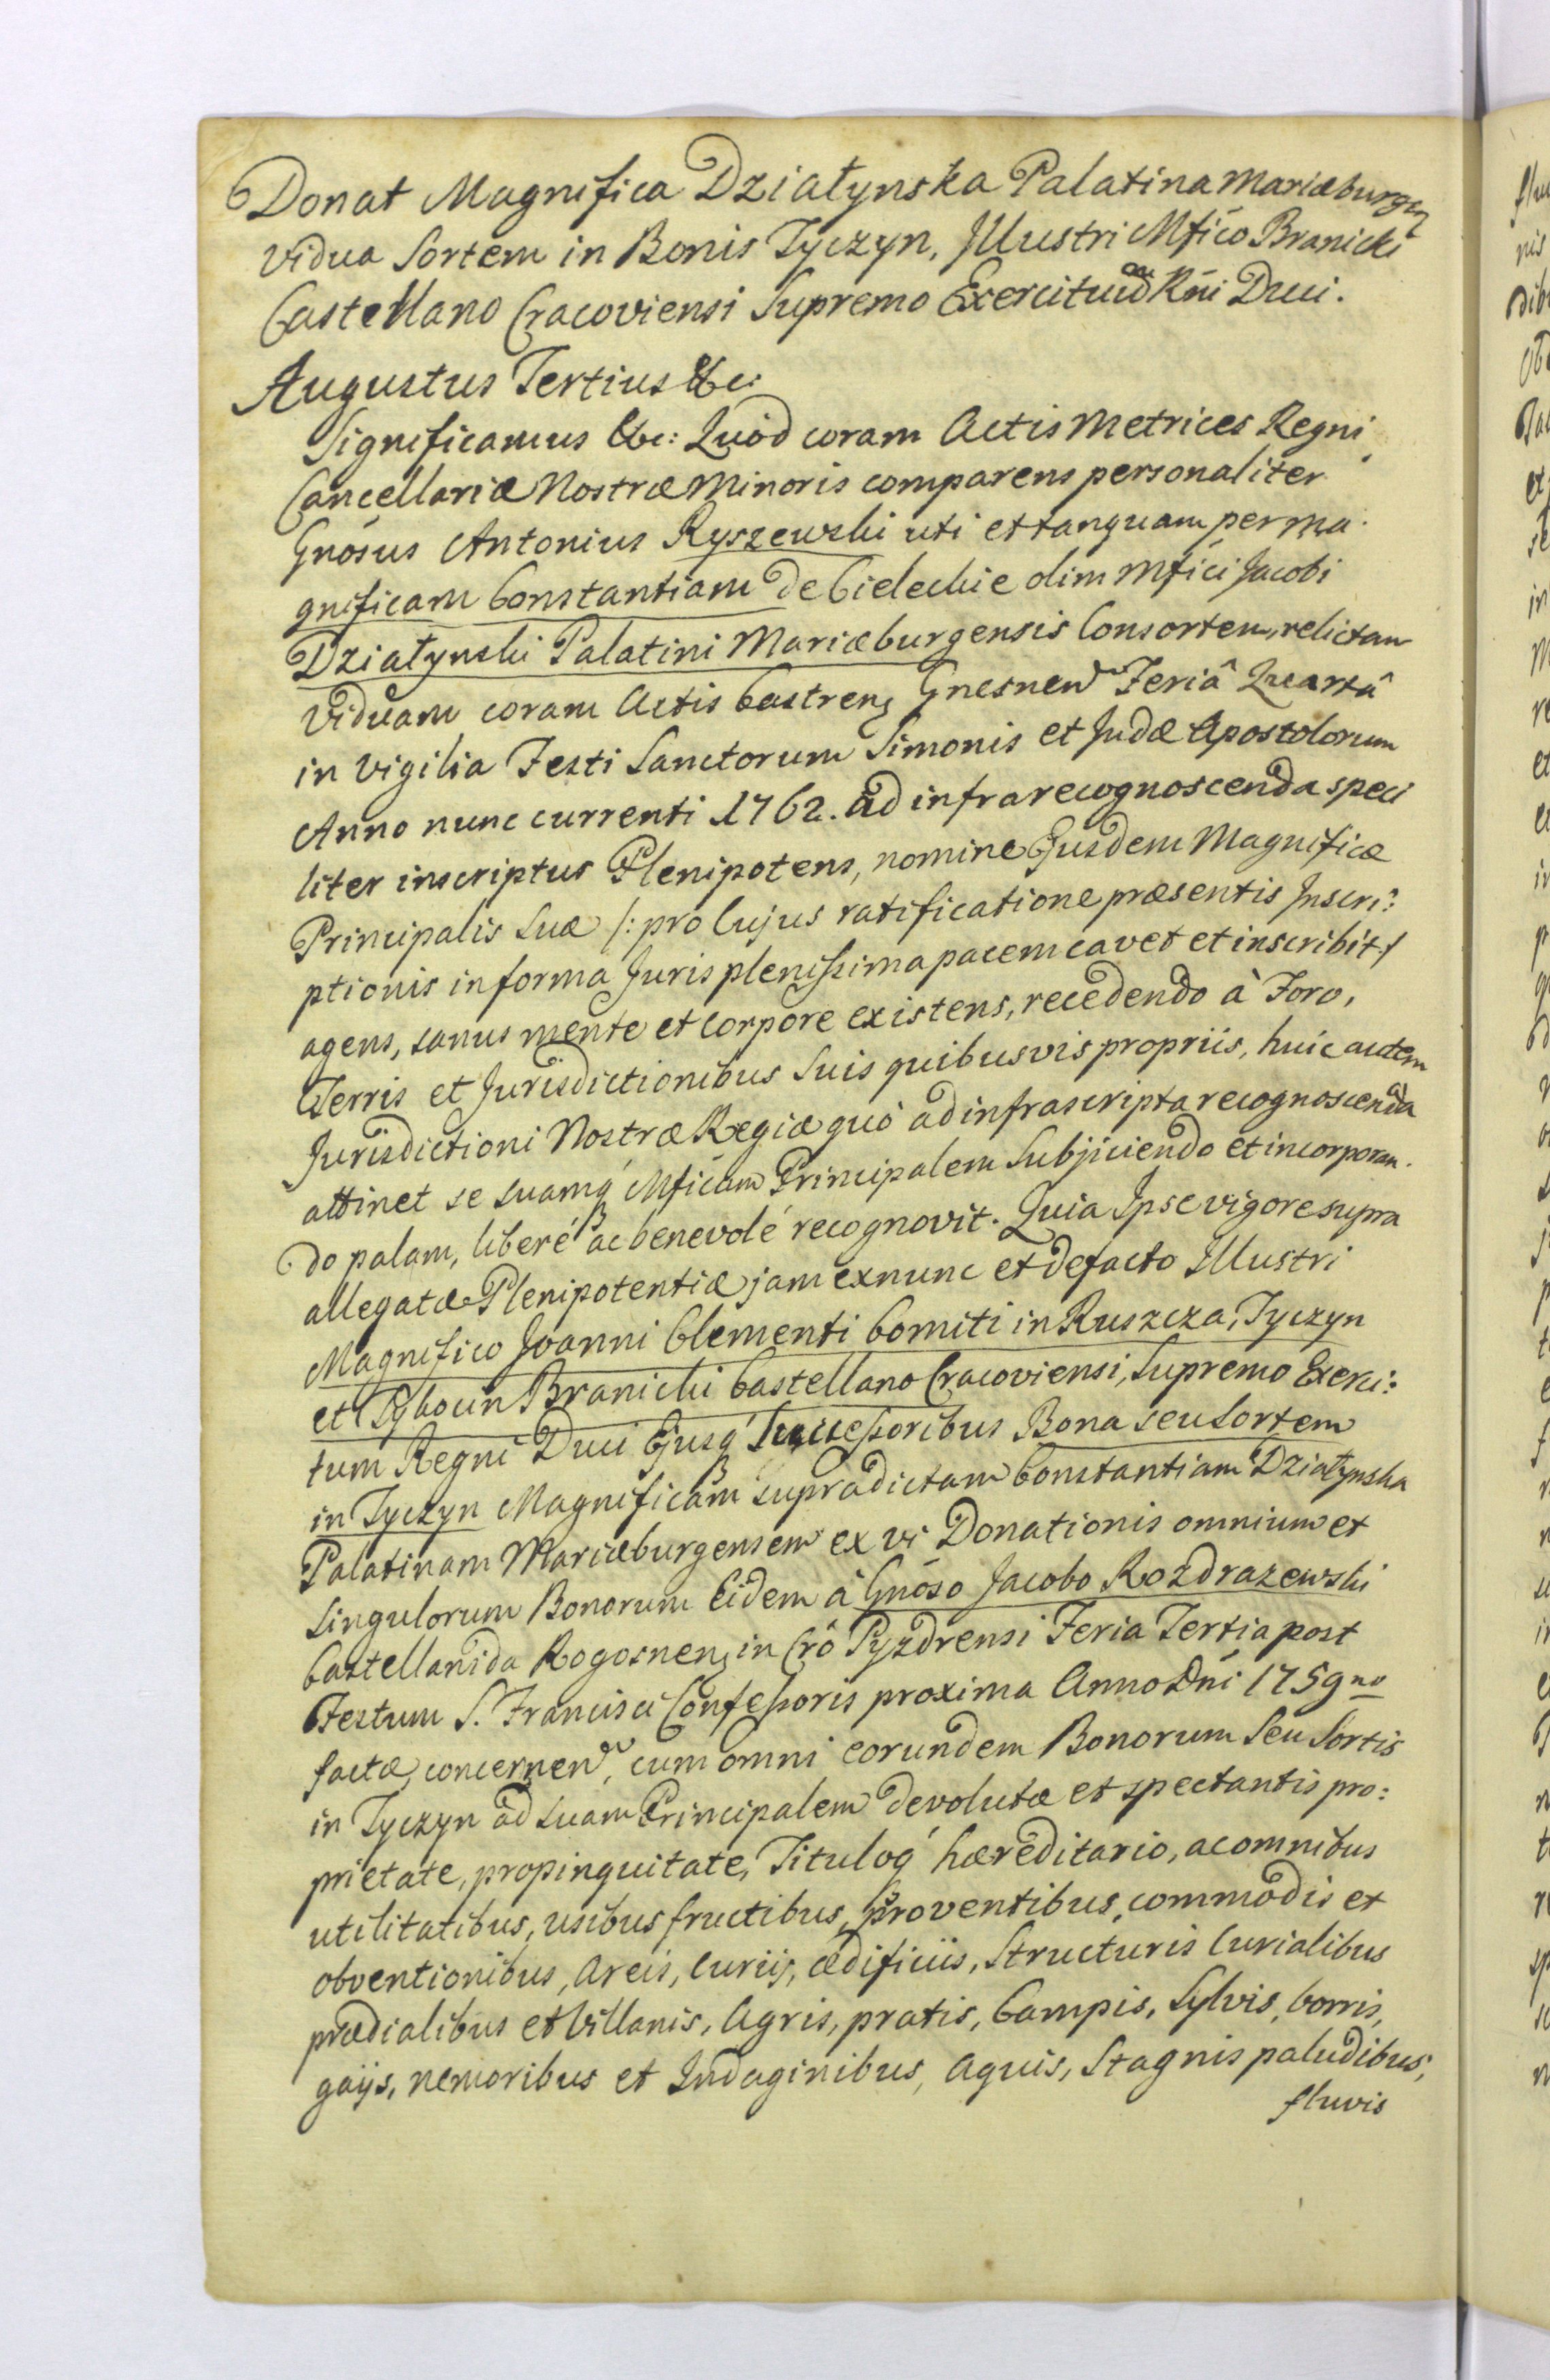 Donat Magnifica Działynska Palatina Mariæburgen
vidua Sortem in Bonis Tyczyn, Illustri Mfico Branicki
Castellano Cracoviensi Supremo Exercituum Rni Duci.
Augustus Tertius &c:
Significamus &c: Quod coram Actis Metrices Regni
Cancellariæ Nostræ Minoris comparens personaliter
Gnosus Antonius Ryszewski uti et tanquam per Ma-
gnificam Constantiam de Bieleckie olim Mfici Jacobi
Działynski Palatini Mariæburgensis Consortem, relictam
Viduam coram Actis Castren Gnesnen Feriâ Quartâ
in Vigilia Festi Sanctorum Simonis et Judæ Apostolorum
Anno nunc currenti 1762. ad infra recognoscenda speci
liter inscriptus Plenipotens, nomine Ejusdem Magnificæ
Principalis Suæ /: pro Cujus ratificatione præsentis Inscri:
ptionis in forma Juris plenissima pacem cavet et inscribit:/
agens, sanus mente et corpore existens, recedendo à Foro,
Terris et Jurisdictionibus Suis quibusvis propriis, huic autem
Jurisdictioni Nostræ Regiæ quò ad infrascripta recognoscenda
attinet se suamq́ Mficam Principalem Subjiciendo et incorporan-
do palam, liberé ac benevolé recognovit. Quia Ipse vigore supra
allegatæ Plenipotentiæ jam exnunc et defacto Illustri
Magnifico Joanni Clementi Comiti in Ruszcza, Tyczyn
et Tykocin Branicki Castellano Cracoviensi, Supremo Exerci:
tum Regni Duci Ejusq́ Successoribus Bona seu Sortem
in Tyczyn Magnificam supradictam Constantiam Działynska
Palatinam Mariæburgensem ex vi Donationis omnium et
Singulorum Bonorum Eidem à Gnoso Jacobo Rozdrazewski
Castellanida Rogosnen in Cro Pyzdrensi Feria Tertia post
Festum S. Francisci Confessoris proxima Anno Dni 1759no
factæ, concernen, cum omni eorundem Bonorum Seu Sortis
in Tyczyn ad suam Principalem devolutæ et spectantis pro:
prietate, propinquitate, Tituloq́ hæreditario, ac omnibus
utilitatibus, usibus fructibus, proventibus, commodis et
obventionibus, Areis, Curijs, ædificiis, Structuris Curialibus
prædialibus et Villanis, Agris, pratis, Campis, Sylvis, borris,
gaijs, nemoribus et Indaginibus, Aquis, Stagnis paludibus,
fluvis